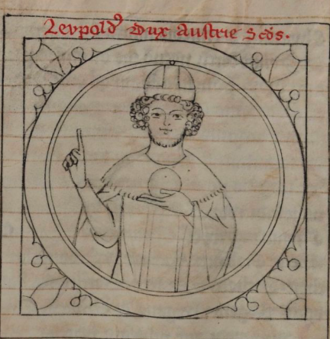 Leupold⁹ dux Austrie Scđs.